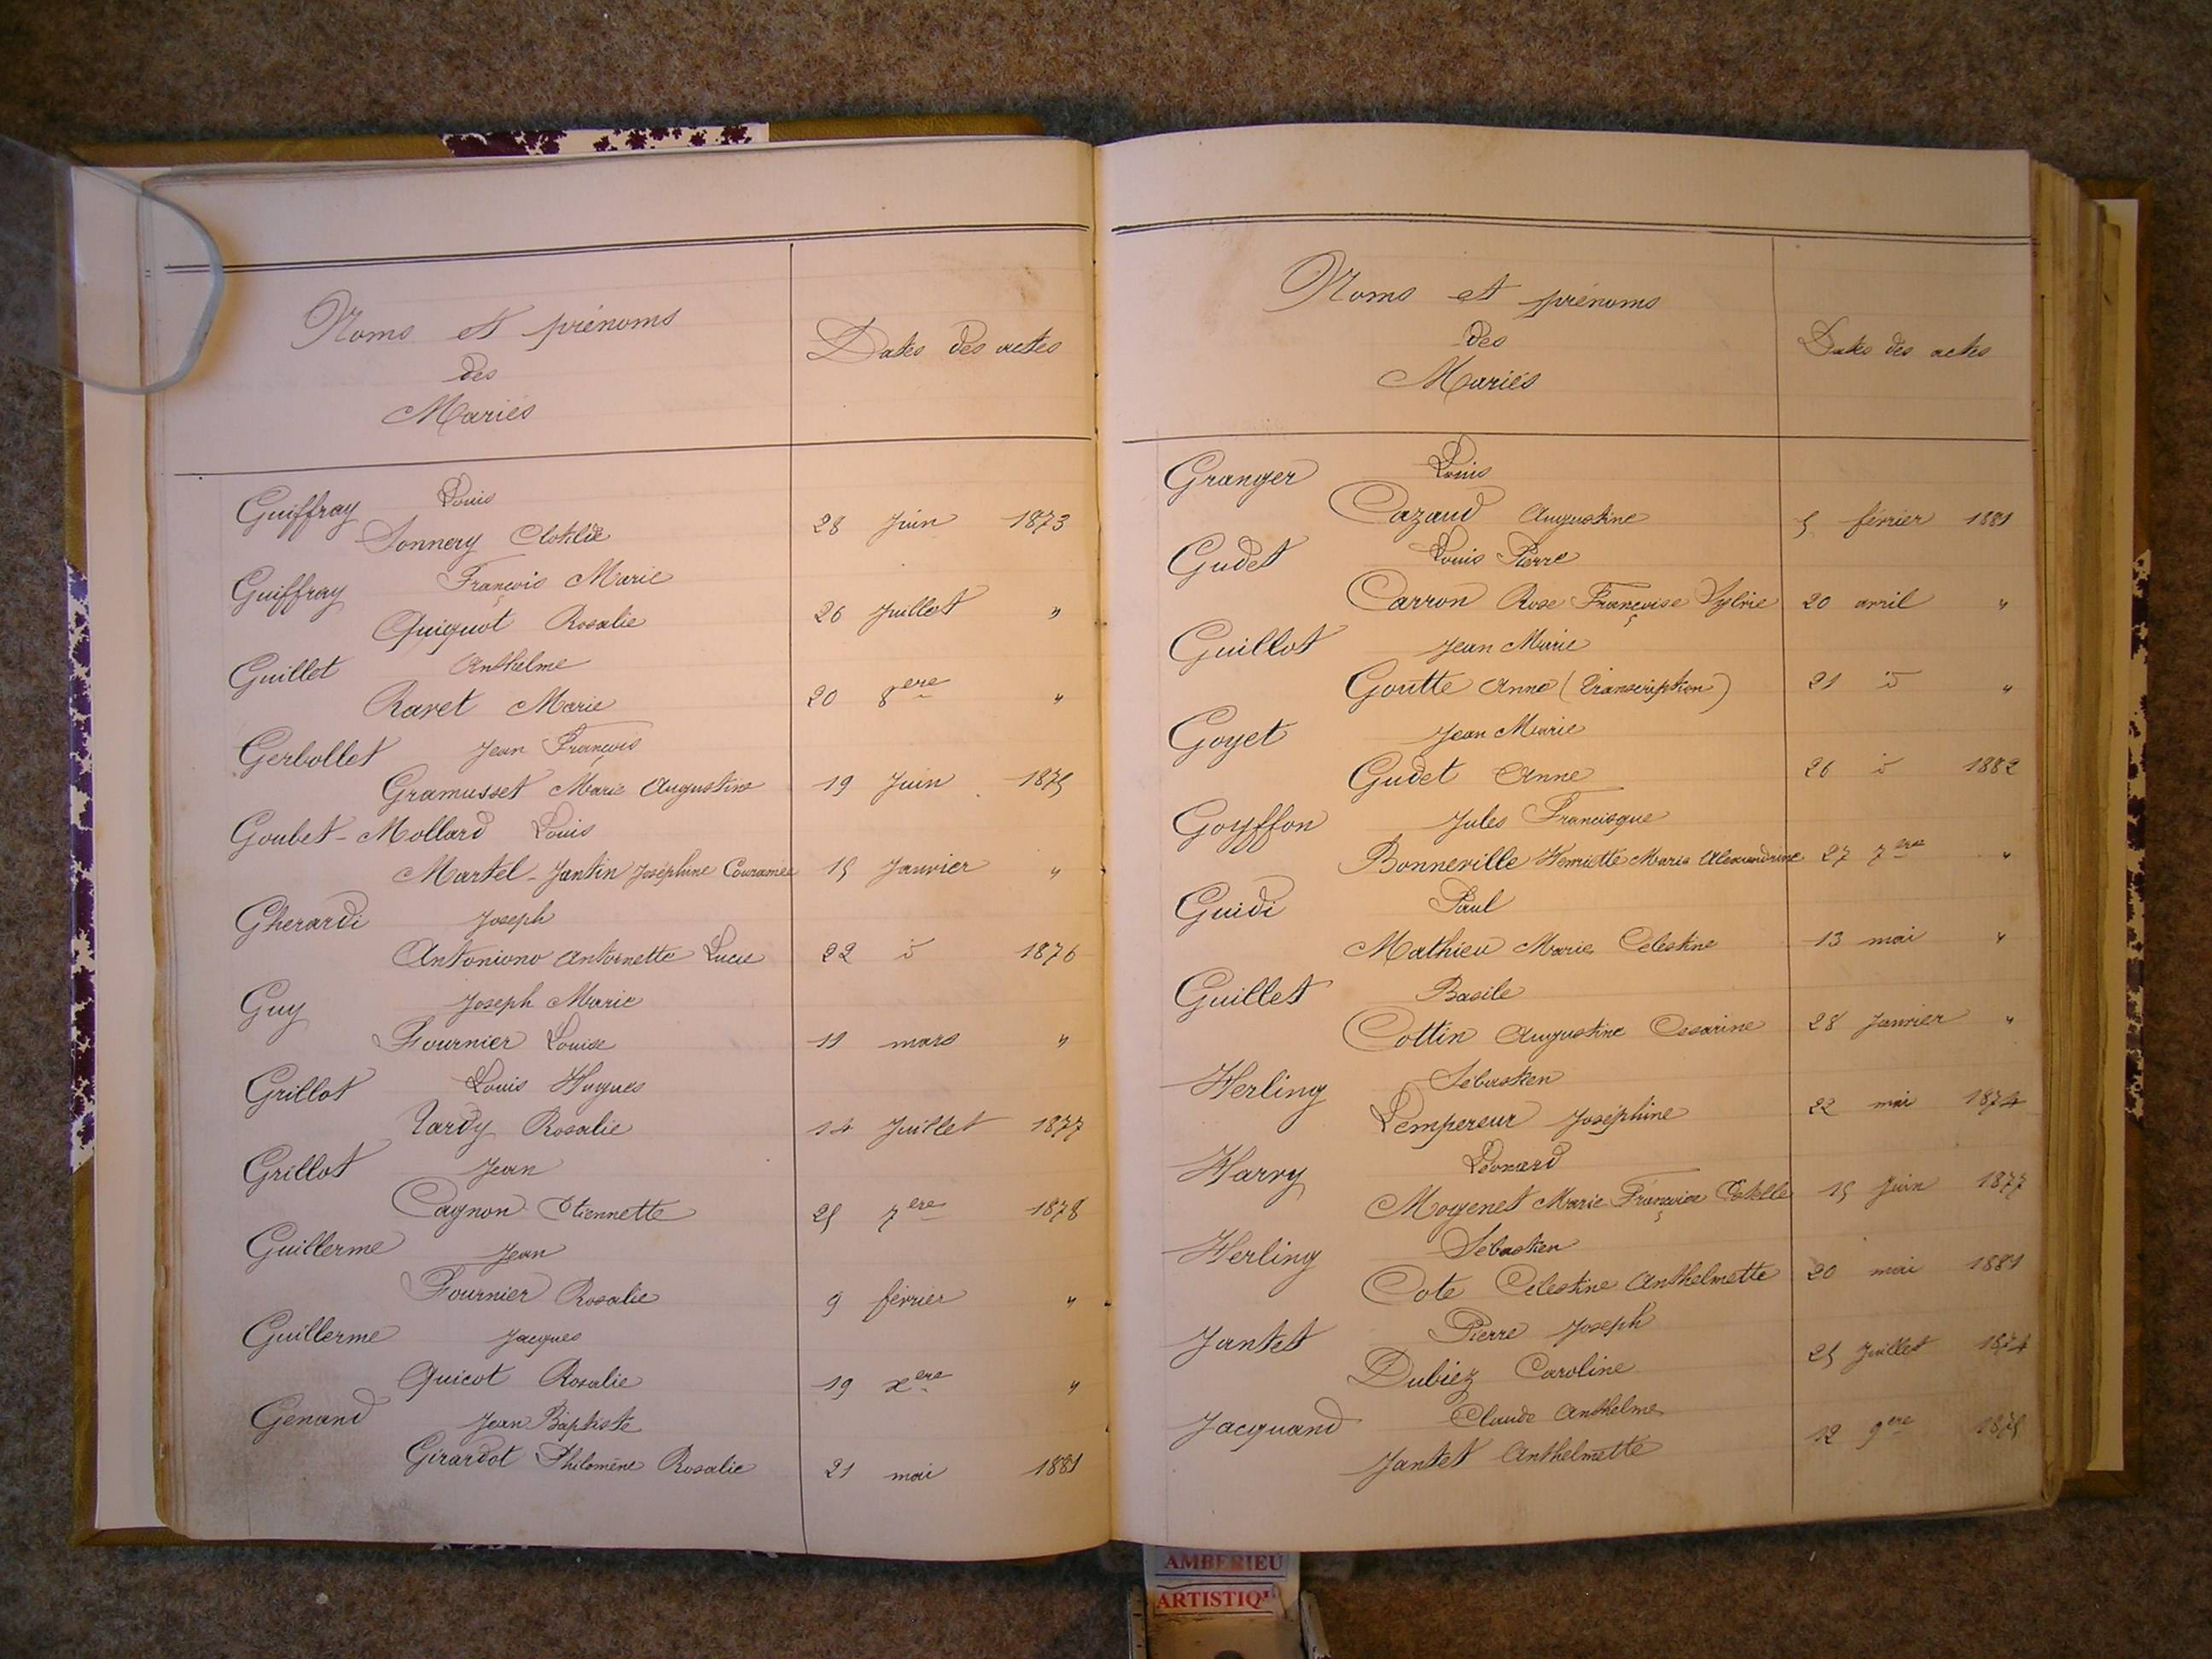 Noms et prénoms
des
Mariés
Dates des actes
Guiffray Louis
Sonnery Clotilde 28 Juin 1873
Guiffray François Marie
Quiquot Rosalie 26 Juillet "
Guillet Anthelme
Ravet Marie 20 8ere "
Gerbollet Jean François
Gramusset Marie Augustine 19 Juin 1875
Goubet-Mollard Louis
Martel-Jantin Joséphine 15 Janvier "
Gherardi Joseph
Antoniono Antoinette Lucie 22 d 1876
Guy Joseph Marie
Fournier Louise 11 mars "
Grillot Louis Hugues
Tardy Rosalie 14 Juillet 1877
Grillot Jean
Cagnon Etiennette 25 7ere 1878
Guillerme Jean
Fournier Rosalie 9 février "
Guillerme Jacques
Quicot Rosalie 19 xere "
Genand Jean Baptiste
Girardot Philomène Rosalie 21 mai 1881
Noms et prénoms
des
Mariés
Dates des actes
Granger Louis
Cazaud Augustine 5 février 1881
Gudet Louis Pierre
Carron Rose Françoise Sylvie 20 avril "
Guillot Jean Marie
Goutte Anne (Transcription) 21 d "
Goyet Jean Marie
Gudet Anne 26 d 1882
Goyffon Jules Francisque
Bonneville Henriette Marie Alexandrine 27 7ere "
Guidi Paul
Mathieu Marie Célestine 13 mai "
Guillet Basile
Cottin Augustine Cesarine 28 Janvier "
Herling Sébastien
Lempereur Joséphine 22 mai 1874
Harry Léonard
Moyenet Marie Françoise Estelle 15 Juin 1877
Herling Sébastien
Cote Célestine Anthelmette 20 mai 1881
Jantet Pierre Joseph
Dubiez Caroline 25 Juillet 1874
Jacquand Claude Anthelme
Jantet Anthelmette 12 9ere 1875
AMBERIEU
ARTISTIQU